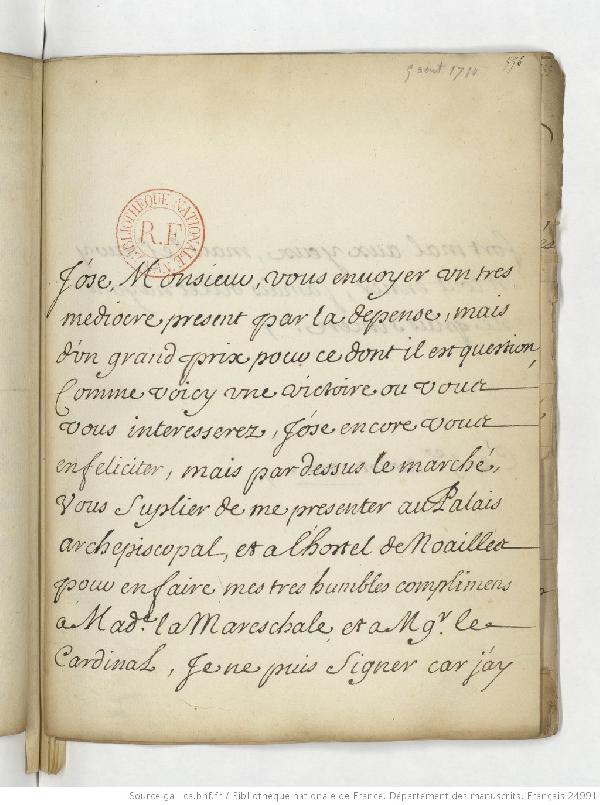 9 aout 1710
556
BIBLIOTHEQUE NATIONALE
R.F.
J'ose, Monsieur, vous envoyer vn tres
mediocre present par la depense, mais
d'vn grand prix pour ce dont il est question,
Comme voicy vne victoire ou vous
vous interesserez, J'ose encore vous
en feliciter, mais par dessus le marché,
Vous Suplier de me presenter au Palais
archepiscopal, et a l'hostel de Noailles
pour en faire mes tres humbles complimens
a Mad.e la Mareschale, et a Mgr. le
Cardinal, Je ne puis Signer car j'ay
Source gallica.bnf.fr / Bibliothèque nationale de France. Département des manuscrits. Français 24991